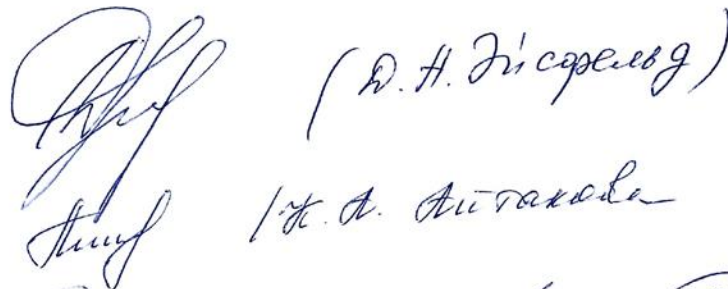 (Д. Н. Эйсфельд)
/ Ж. А. Айтакова